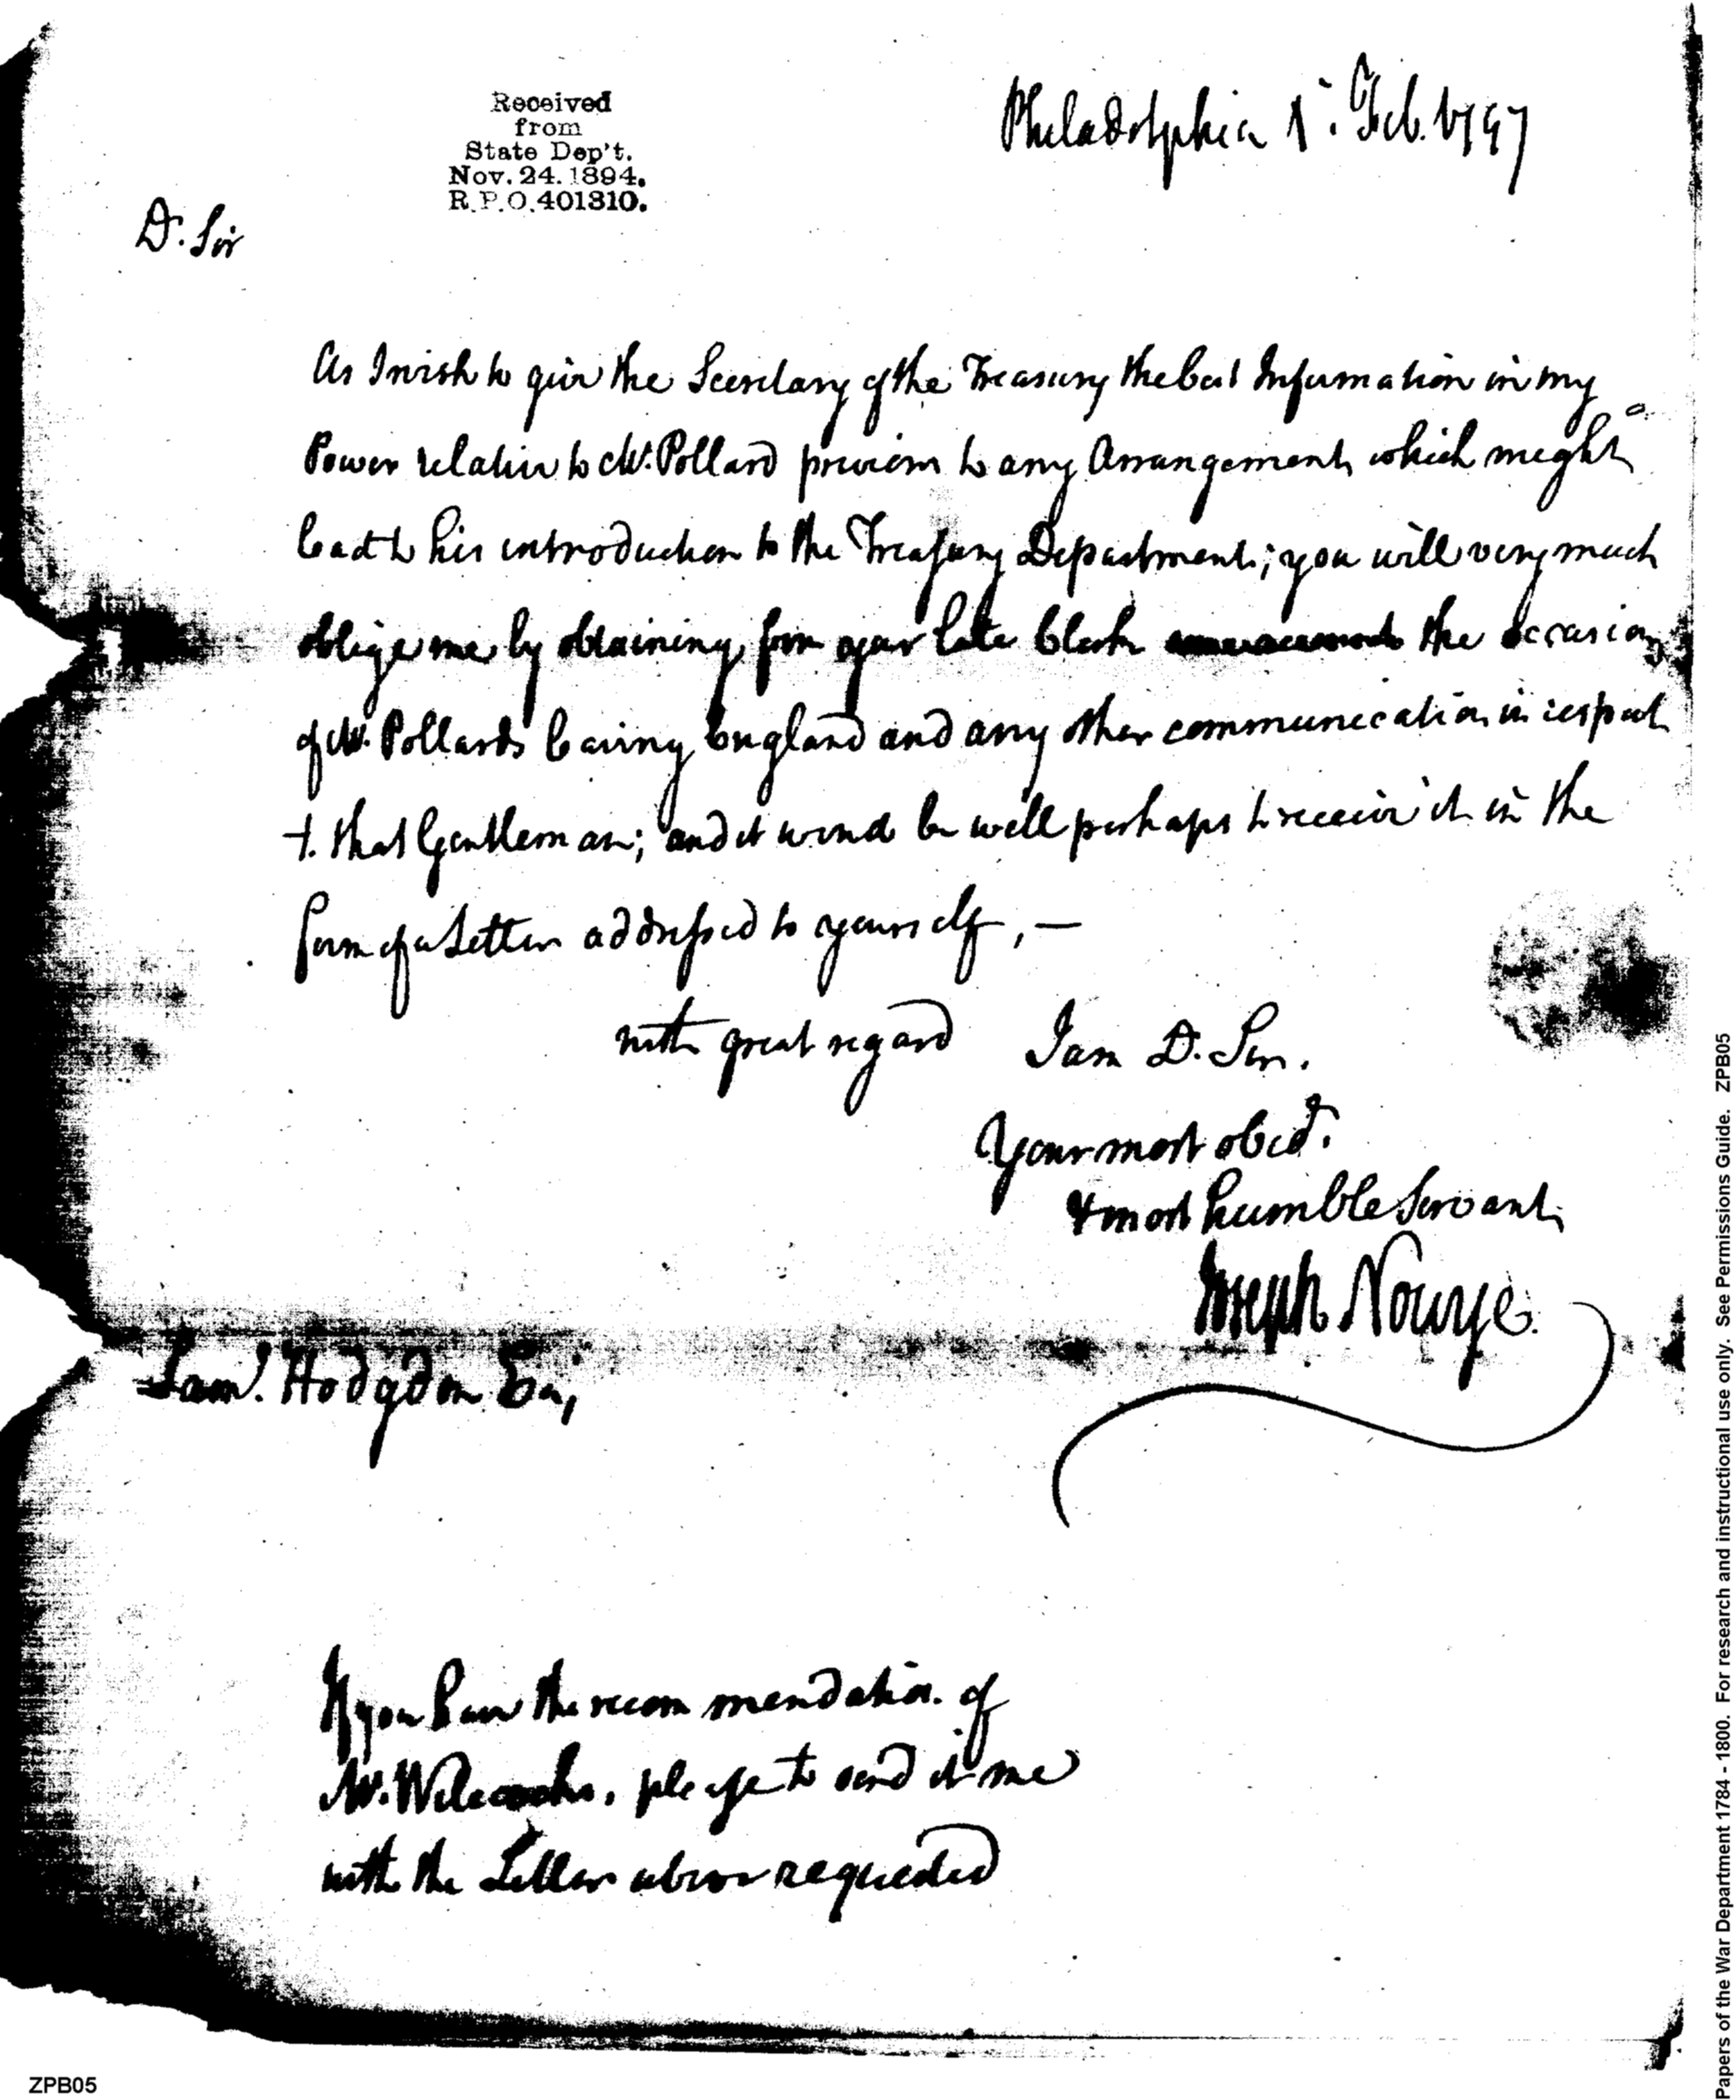 Received
from
State Dep't.
Nov. 24. 1894.
R.P.O. 401310.
Philadelphia 1. Feb. 1797
Dr. Sir
As I wish to give the Secretary of the Treasury the best Information in my
Power relative to Mr. Pollard previous to any Arrangement, which might
lead to his introduction to the Treasury Department; you will very much
oblige me by obtaining from your late Clerk the occasion
of Mr. Pollards leaving England and any other communication in respect
t. that Gentleman; and it woud be well perhaps to receive it in the
form of a Letter addressed to yourself, —
with great regard I am D. Sir.
Your most obedt.
& most humble Servant,
Joseph Nourse
Saml. Hodgdon Esq,
If you have the recommendation of
Mr. Wilcocks, please to send it me
with the Letter above requested
Papers of the War Department 1784 - 1800. For research and instructional use only. See Permissions Guide. ZPB05
ZPB05